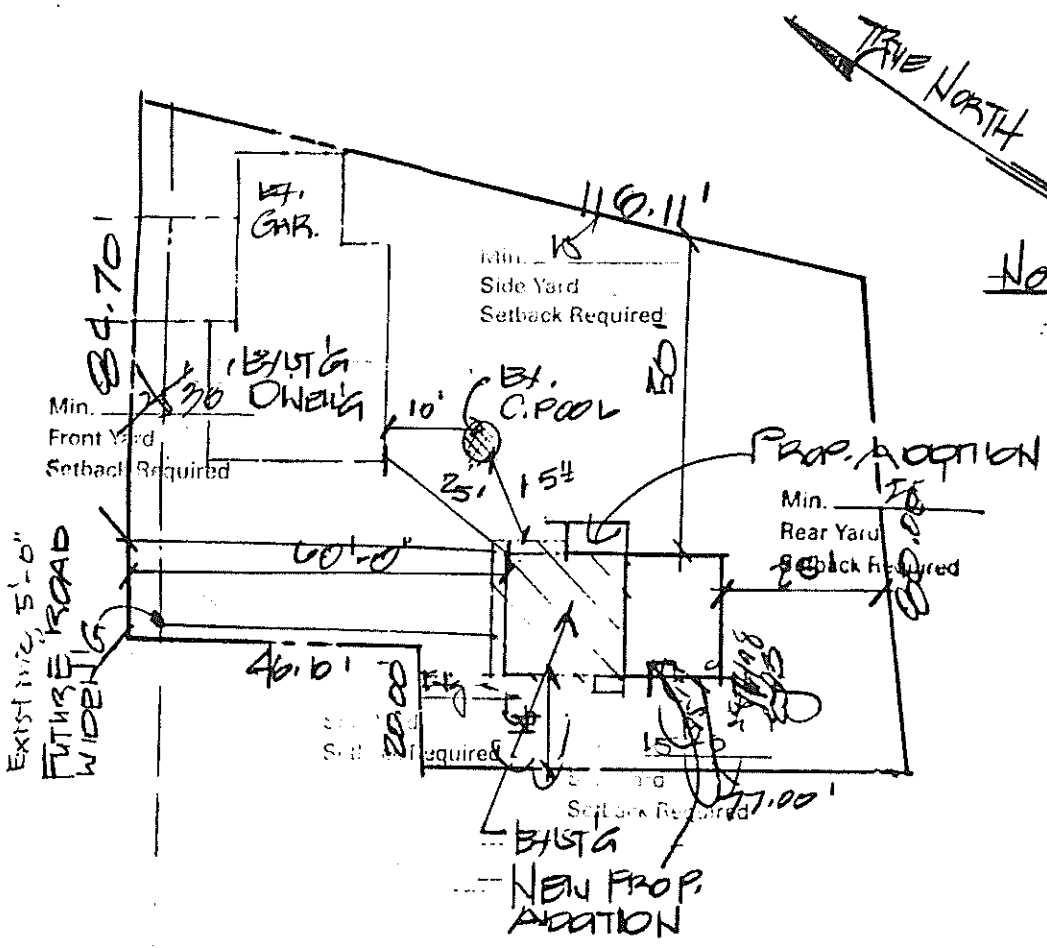 TRUE NORTH
NO
116.11'
EX.
GAR.
Min. 10
Side Yard
Setback Required
84.70'
50'
EX.
C.POOL
EXIST'G
DWEL'G
10'
Min.
Front Yard
Setback Required
25'
15'
PROP. ADDITION
Min.
Rear Yard
Setback Required
60'-0"
EXISTING 5'-0"
FUTURE ROAD
WIDEN'G
46.10'
20.00'
Setback Required
15
Setback Required
77.00'
EXIST'G
NEW PROP.
ADDITION